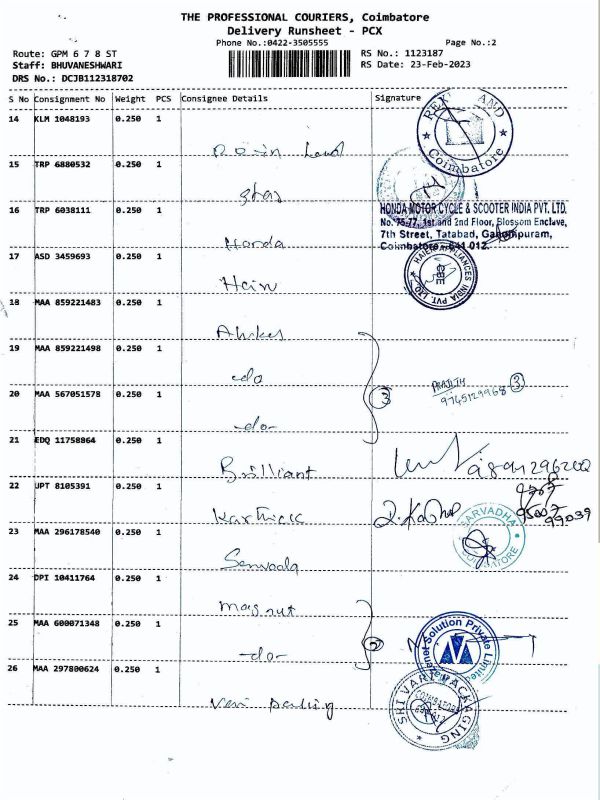 THE PROFESSIONAL COURIERS, Coimbatore
Delivery Runsheet - PCX
Phone No.:0422-3505555 Page No.:2
Route: GPM 6 7 8 ST RS No.: 1123187
Staff: BHUVANESHWARI RS Date: 23-Feb-2023
DRS No.: DCJB112318702
S No Consignment No Weight PCS Consignee Details Signature
14 KLM 1048193 0.250 1
Coimbatore
15 TRP 6880532 0.250 1
Star
16 TRP 6038111 0.250 1
HONDA MOTOR CYCLE & SCOOTER INDIA PVT. LTD.
No. 75-77, 1st and 2nd Floor, Blossom Enclave,
7th Street, Tatabad, Gandhipuram,
Coimbatore - 641 012.
Honda
17 ASD 3459693 0.250 1
HAIER APPLIANCES INDIA PVT. LTD.
18 MAA 859221483 0.250 1
19 MAA 859221498 0.250 1
-do
20 MAA 567051578 0.250 1
3
PRAJITH 3
9745129968
-do-
21 EDQ 11758864 0.250 1
Brilliant
22 JPT 8105391 0.250 1
Karthick
99039
23 MAA 296178540 0.250 1
SARVADHA
COIMBATORE
24 DPI 10411764 0.250 1
25 MAA 600071348 0.250 1
Solution Private Limited
-do-
2
26 MAA 297800624 0.250 1
SRI VARI PACKAGING
COIMBATORE